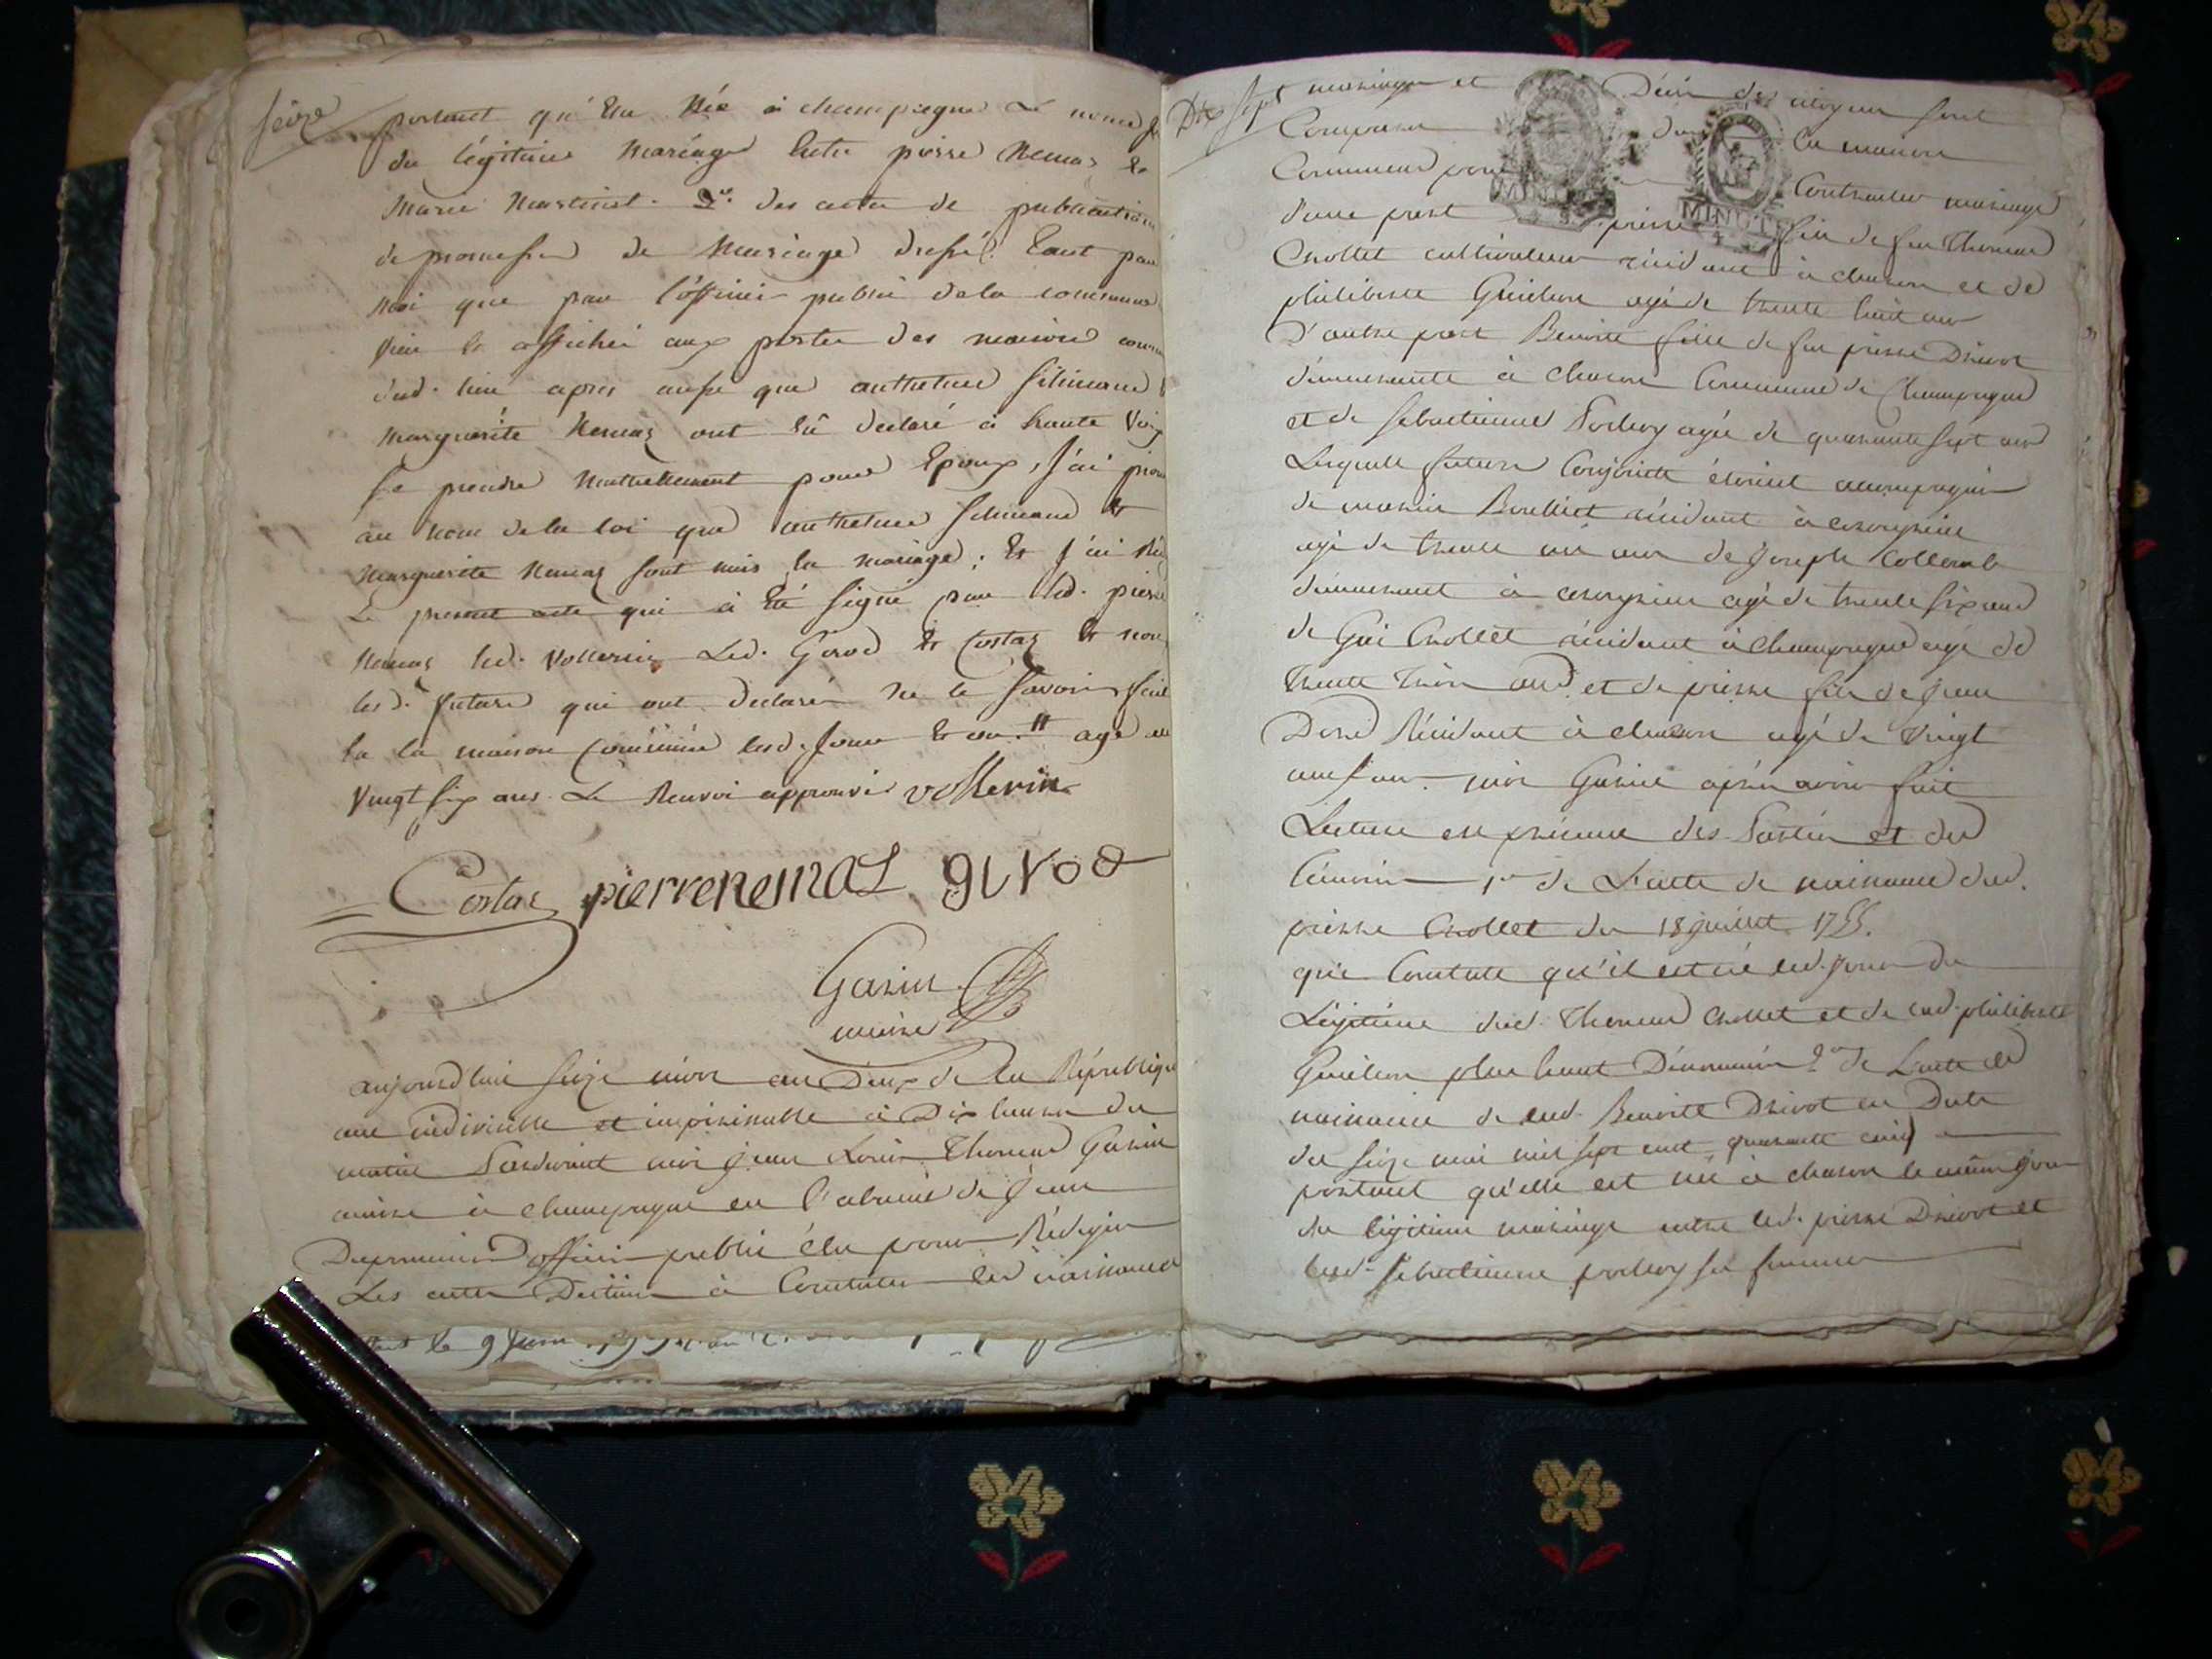 seize
portant qu'Elle Née à champagne Le
du légitime mariage Entre pierre Nemoz &
marie martinet. 2.º des actes de publication
de promesses de Mariage dressé. tant par
moi que par l'officier public dela commune
vieu & affiché aux portes des maisons
dud. lieu après aussi que anthelme silimand
marguerite Nemoz ont Eû declaré à haute Voix
se prendre Mutuellement pour Epoux, J'ai
au nom de la loi que anthelme silimand &
marguerite Nemoz sont unis En mariage; Et j'ai
Le present acte qui à Eté signé par led. pierre
Nemoz led. vollerin Led. Girod & Costaz & non
lesd. futurs qui ont declaré ne le savoir fait
En la maison commune lesd. Jour & an. # agé de
Vingt six ans. Le Renvoi approuvé vollerin
Costaz pierrenemoz girod
Garin
maire
aujourdhui seize nivos an Deux de La République
une indivisible et imperissable à Dix heures du
matin Pardevant moi jean Louis Thomas Garin
maire à champagne en l'absence de jean
officier public élu pour Rédiger
Les actes Destinés à Constater les naissances
Dix sept
mariages et Décès des citoyens sont
Comparus dans la maison
Commune pour Contracter mariage
d'une part pierre fils de feu Thomas
Chollet cultivateur résidant à chason et de
philiberte Guichon agé de trente huit ans
D'autre part Benoite fille de feu pierre Drivot
demeurante à chason Commune de Champagne
et de sebastienne agée de quarante sept ans
Lesquels futurs Conjoints étoient accompagnés
de résidant à
agé de trente ans de Joseph Collomb
demeurant à agé de trente six ans
de Gui Chollet résidant à champagne agé de
trente trois ans et de pierre fils de jean
Résidant à chason agé de vingt
neuf ans. moi Garin après avoir fait
Lecture en présence des Parties et des
témoins 1.º de L'acte de naissance dud.
pierre Chollet du 18 juillet 1755.
qui Constate qu'il est né led. jour du
Légitime dud. Thomas Chollet et de lad. philiberte
Guichon plus haut Dénommés 2.º de L'acte de
naissance de lad. Benoite Drivot en Date
du seize mai mil sept cent quarante cinq
portant qu'elle est née à chason le même jour
du légitime mariage entre led. pierre Drivot et
lad. sebastienne sa femme